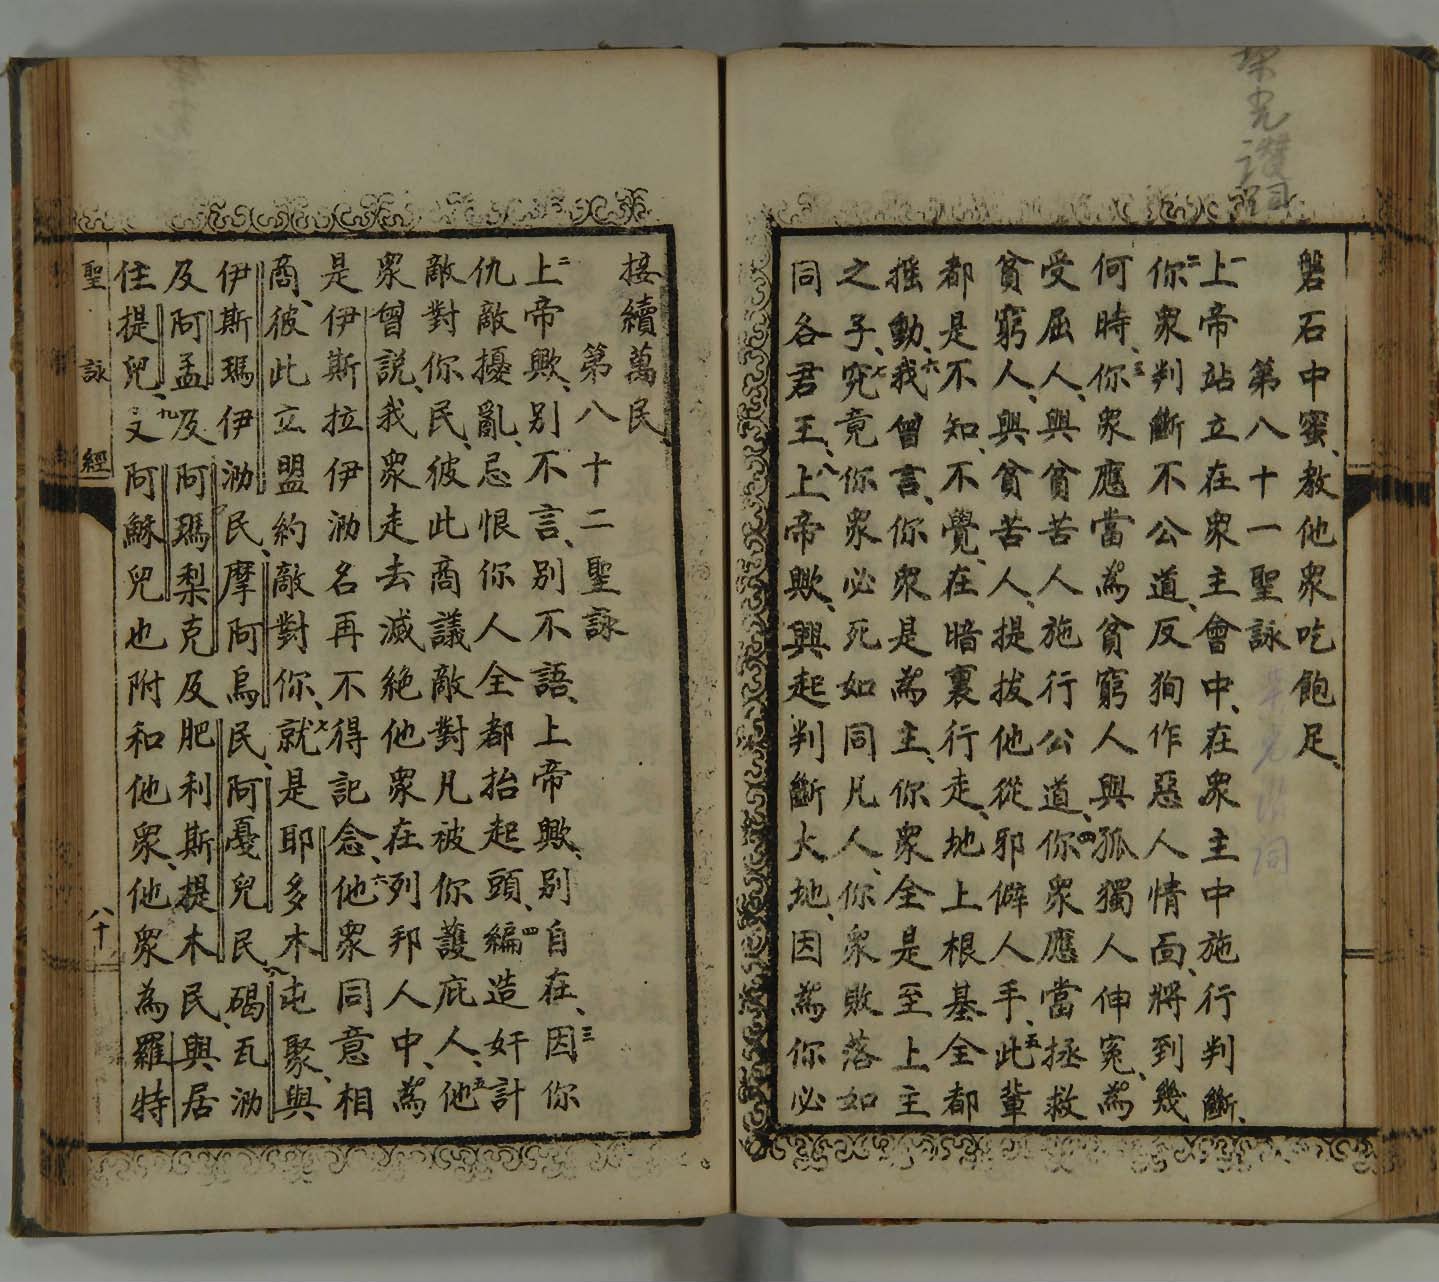 榮光讚詞
磐石中蜜、教他衆吃飽足、
第八十一聖詠
一上帝站立在衆主會中、在衆主中施行判斷、
二你衆判斷不公道、反狥作惡人情面、將到幾
何時、三你衆應當為貧窮人與孤獨人伸寃、為
受屈人、與貧苦人施行公道、四你衆應當拯救
貧窮人、與貧苦人、提拔他從邪僻人手、五此輩
都是不知、不覺、在暗裏行走、地上根基全都
摇動、六我曾言、你衆是為主、你衆全是至上主
之子、七究竟你衆必死如同凡人、你衆敗落如
同各君王、八上帝歟、興起判斷大地、因為你必
接續萬民、
第八十二聖詠
二上帝歟、别不言、别不語、上帝歟、别自在、三因你
仇敵擾亂、忌恨你人全都抬起頭、四編造奸計
敵對你民、彼此商議敵對凡被你護庇人、五他
衆曾説、我衆走去滅絶他衆在列邦人中、為
是伊斯拉伊泐名再不得記念、六他衆同意相
商、彼此立盟約敵對你、七就是耶多木屯聚、與
伊斯瑪伊泐民、摩阿烏民、阿憂兒民、八碣瓦泐
及阿孟及阿瑪梨克及肥利斯提木民與居
住提兒、九又阿穌兒也附和他衆、他衆為羅特
聖詠經
八十